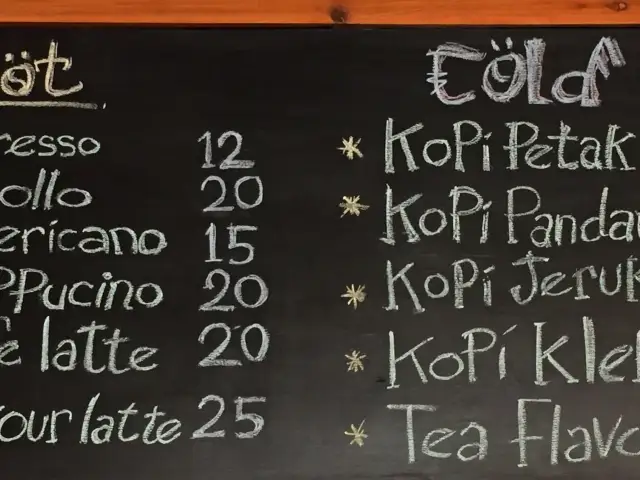 öt
resso 12
ollo 20
ericano 15
PPucino 20
é latte 20
our latte 25
Cöld
* KoPi Petak
* KoPi Panda
* KoPi Jeruk
* KoPi Kle
* Tea Flavo